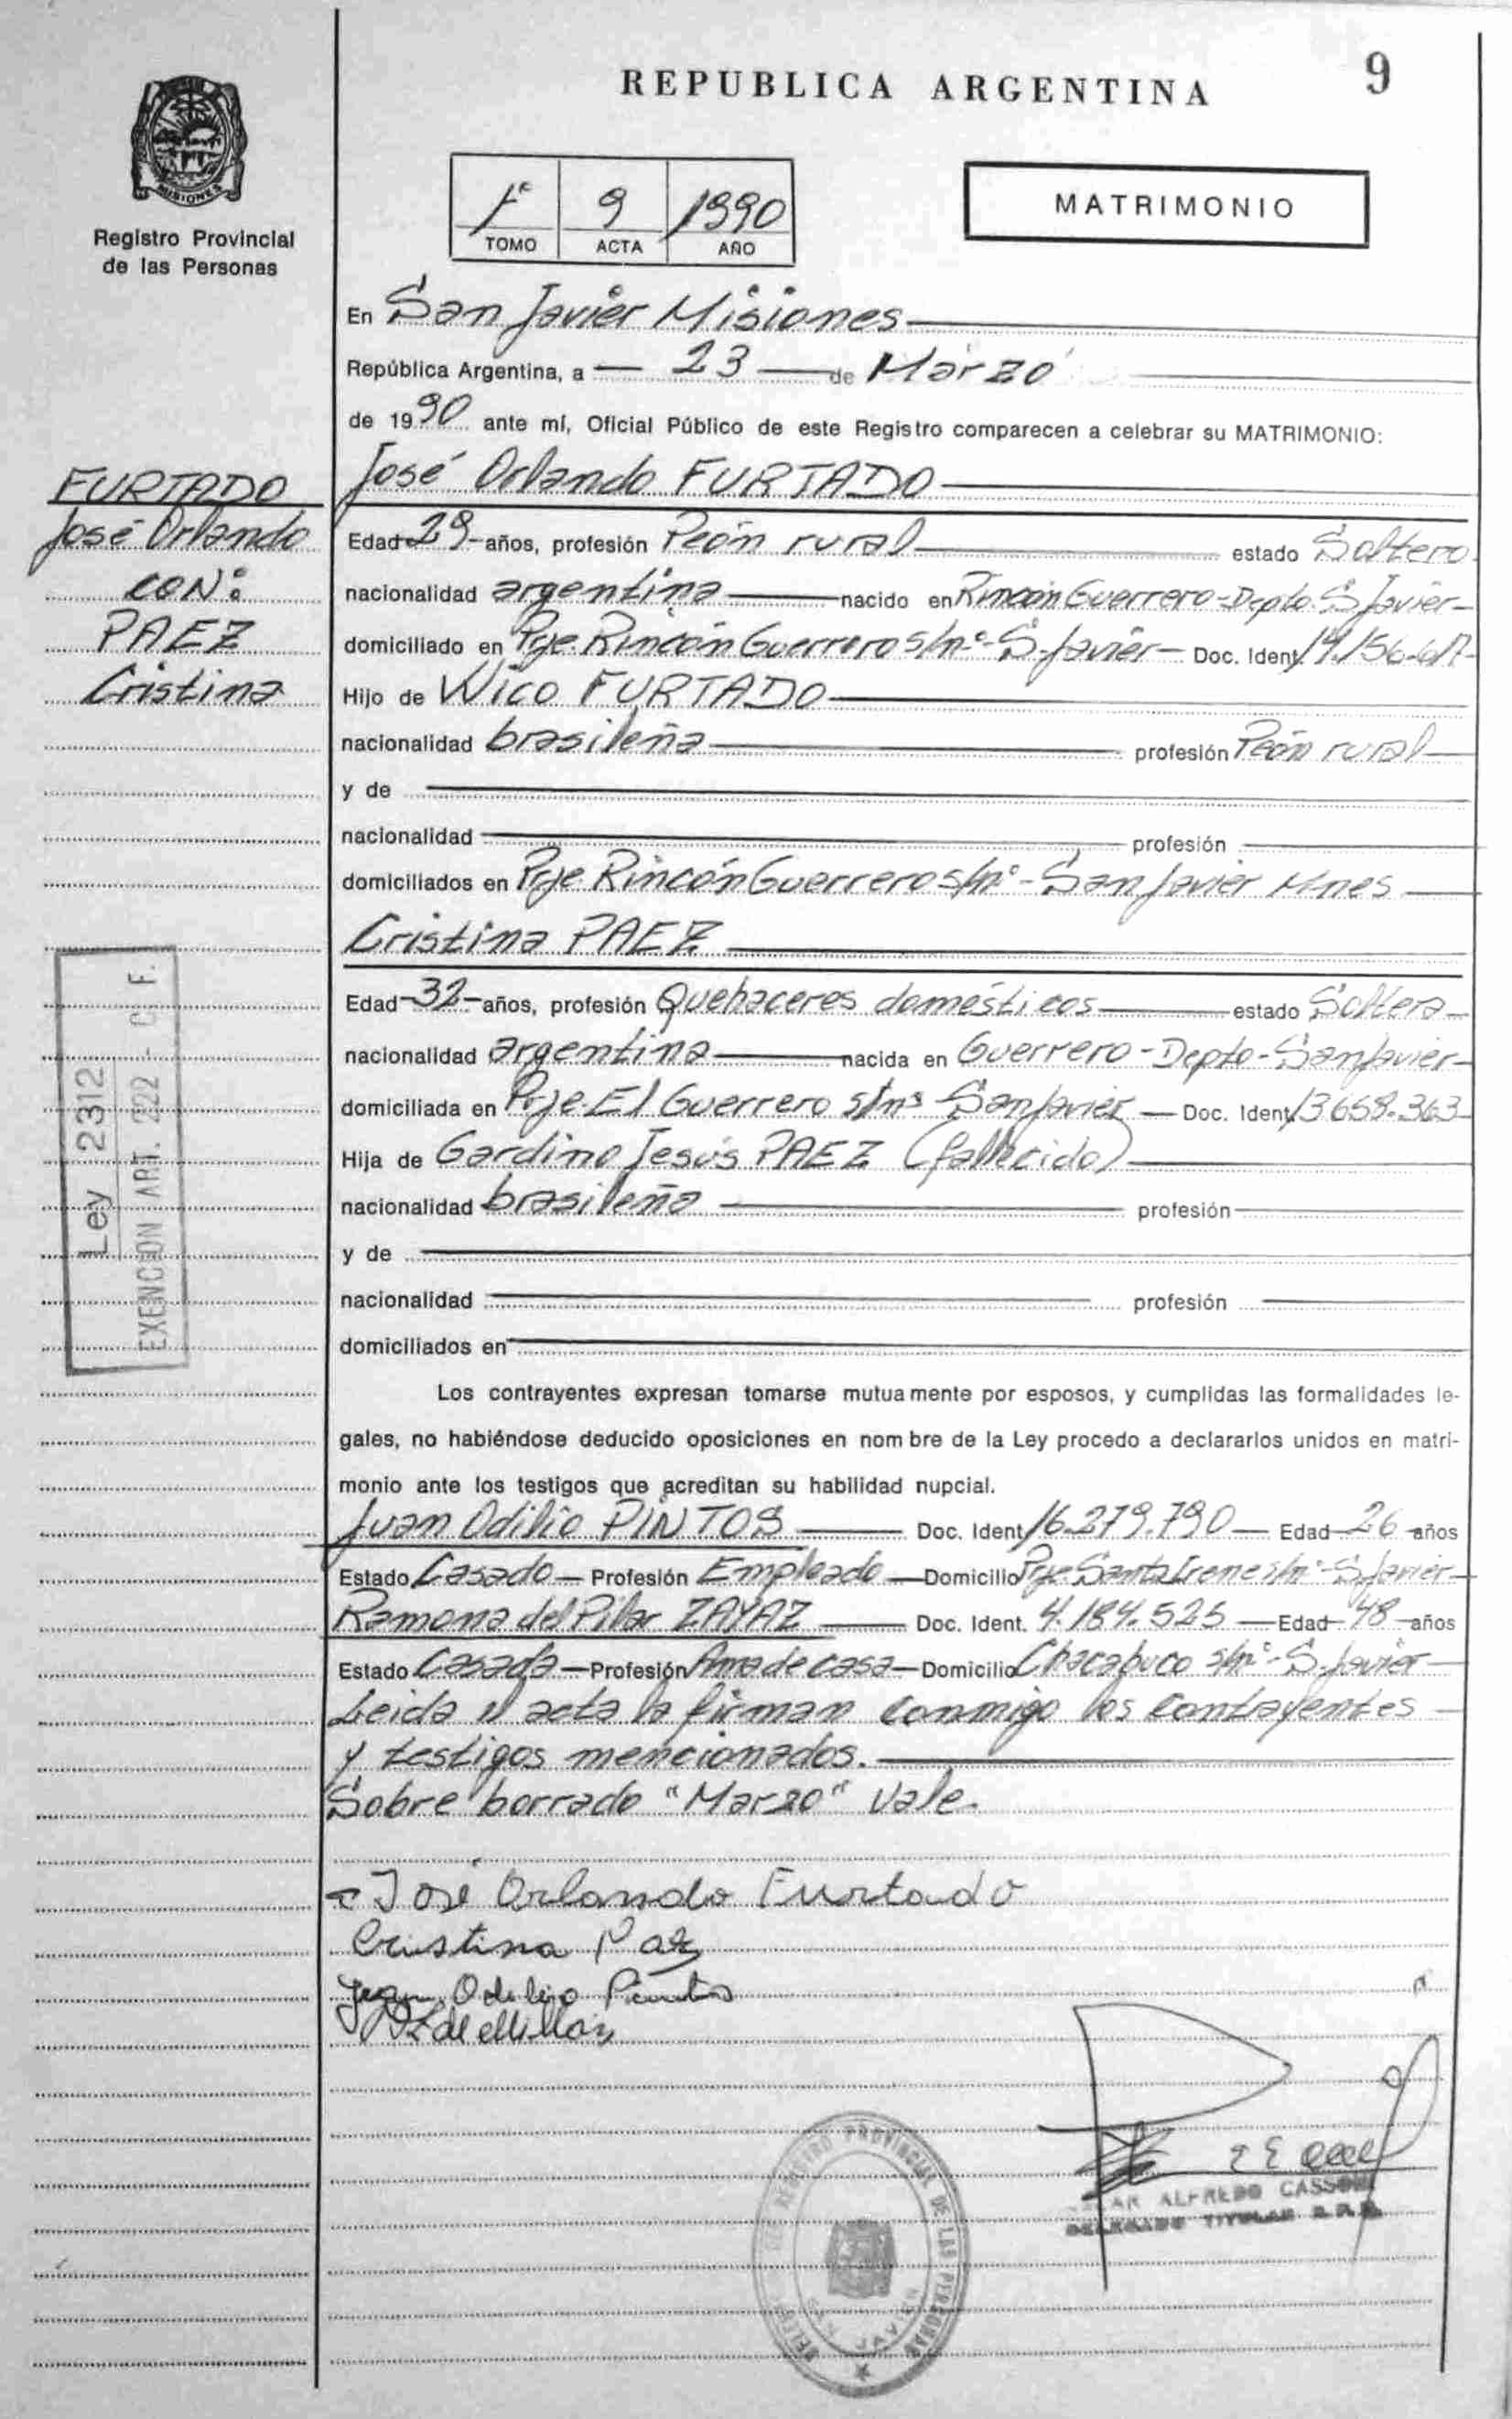 REPUBLICA ARGENTINA
9
MISIONES
Registro Provincial
de las Personas
1º 9 1990
TOMO ACTA AÑO
MATRIMONIO
En San Javier Misiones
República Argentina, a 23 de Marzo
de 1990 ante mí, Oficial Público de este Registro comparecen a celebrar su MATRIMONIO:
FURTADO
José Orlando
CON:
PAEZ
Cristina
José Orlando FURTADO
Edad 29 años, profesión Peón rural estado Soltero
nacionalidad argentina nacido en Rincón Guerrero-Depto. S. Javier-
domiciliado en Pje. Rincón Guerrero s/nº-S. Javier- Doc. Ident.
Hijo de Wico FURTADO
nacionalidad brasileña profesión Peón rural
y de
nacionalidad profesión
domiciliados en Pje Rincón Guerrero s/nº-San Javier Mnes
Cristina PAEZ
Edad 32 años, profesión Quehaceres domésticos estado Soltera
nacionalidad argentina nacida en Guerrero-Depto-San Javier-
domiciliada en Pje. El Guerrero s/nº San Javier Doc. Ident. 13658.363
Hija de Gardino Jesús PAEZ (fallecido)
nacionalidad brasileña profesión
y de
nacionalidad profesión
domiciliados en
Ley 2312
EXENCION ART. 2222 - C. F.
Los contrayentes expresan tomarse mutuamente por esposos, y cumplidas las formalidades le-
gales, no habiéndose deducido oposiciones en nombre de la Ley procedo a declararlos unidos en matri-
monio ante los testigos que acreditan su habilidad nupcial.
Juan Odilio PINTOS Doc. Ident. 16.279.790 Edad 26 años
Estado Casado Profesión Empleado Domicilio Pje Santa Irene s/nº-S. Javier-
Ramona del Pilar ZAYAZ Doc. Ident. 4.184.525 Edad 48 años
Estado Casada Profesión Ama de casa Domicilio Chacabuco s/nº-S. Javier
Leida el acta la firman conmigo los contrayentes
y testigos mencionados.
Sobre borrado "Marzo" Vale.
José Orlando Furtado
Cristina Paz
Juan Odilio Pintos
Z de Millan
ALFREDO
DELEGADO TITULAR R.P.P.
REGISTRO PROVINCIAL DE LAS PERSONAS
SAN JAVIER